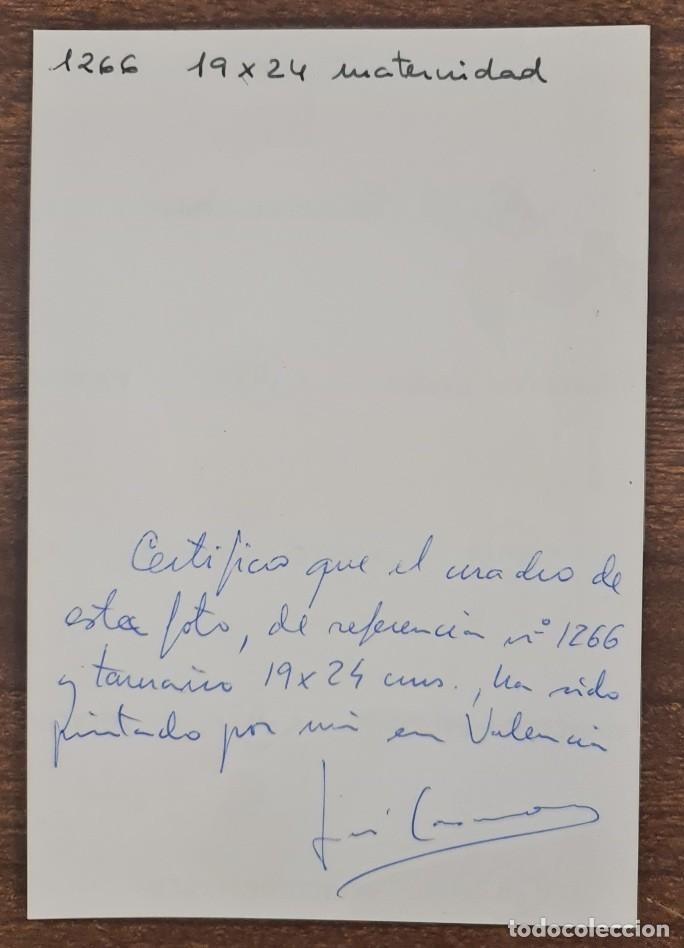 1266 19 x 24 maternidad
Certifico que el cuadro de
esta foto, de referencia nº 1266
y tamaño 19 x 24 cms., ha sido
pintado por mí en Valencia
todocoleccion